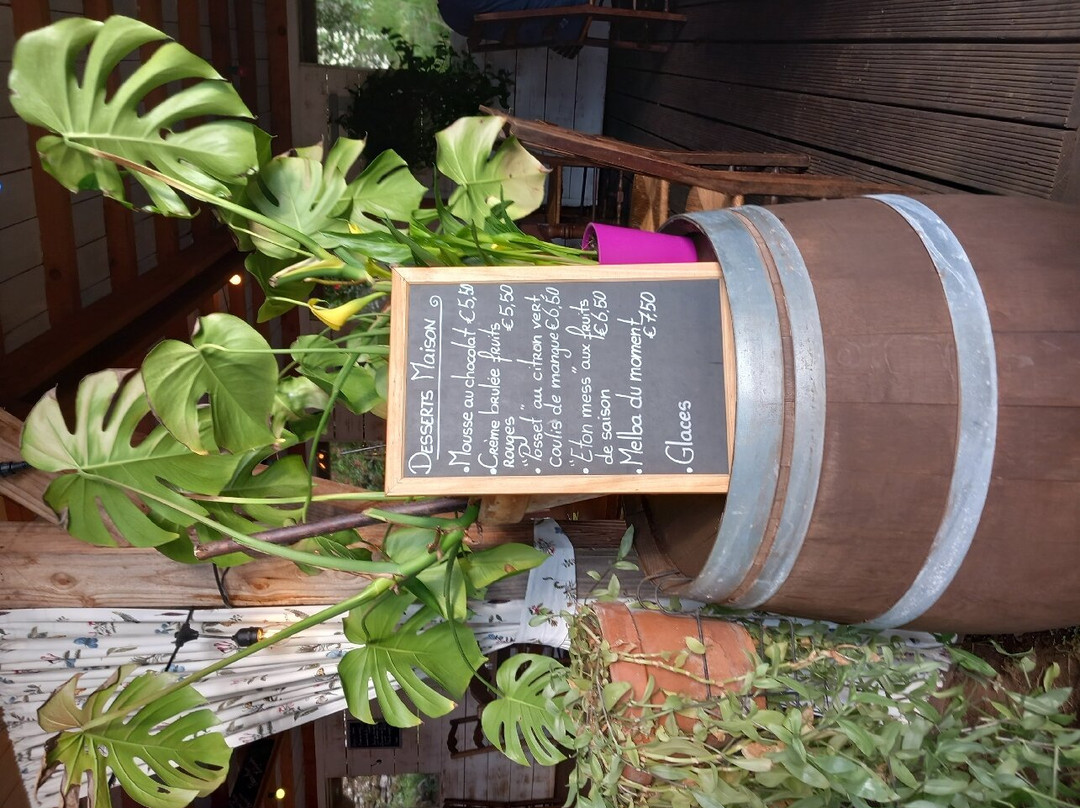 Desserts Maison
• Mousse au chocolat €5,50
• Crème brulée fruits
rouges €5,50
• Posset au citron vert,
coulis de mangue €6,50
• "Eton mess" aux fruits
de saison €6,50
• Melba du moment
€7,50
• Glaces